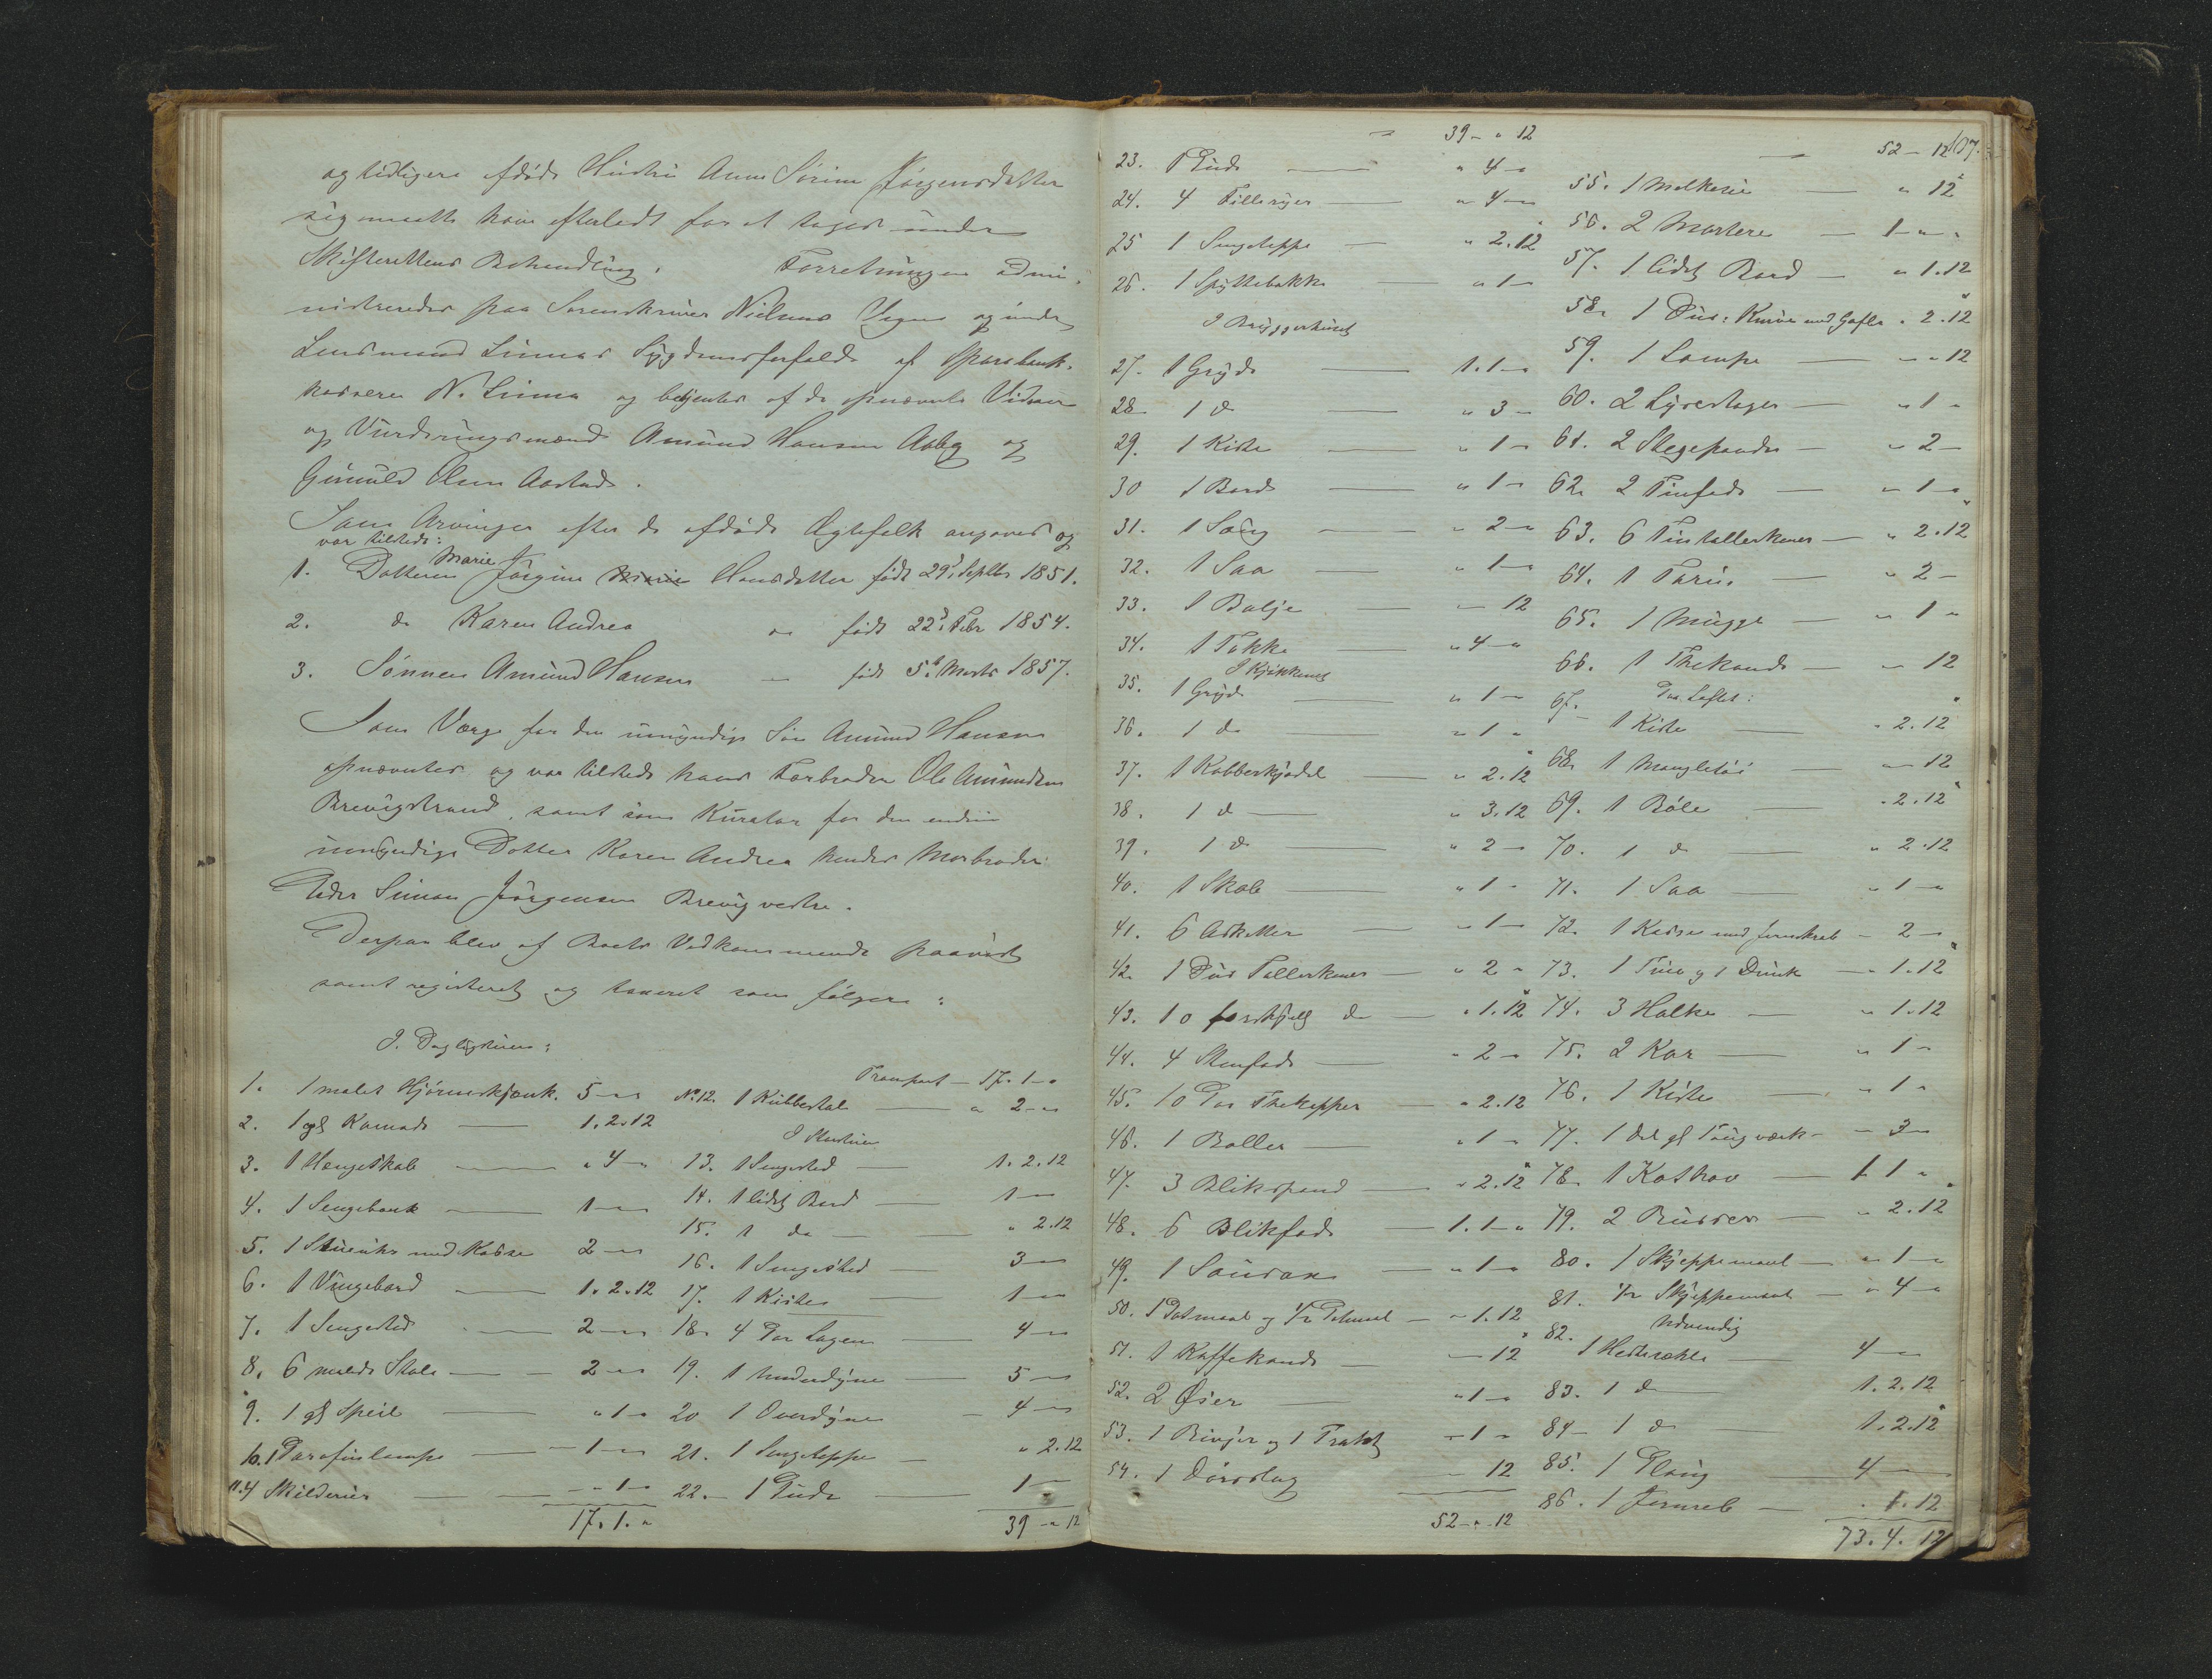 og tidligere afdøde Hustru Anne Sørine Jørgensdatter
sig maatte have efterladt for at tages under
Skifterettens Behandling. Forretningen admi-
nistreredes paa Sorenskriver Nielsens Vegne og under
Lensmand Linnes Sygdomsforfald af Sparebank-
kasserer N. Linne og betjentes af de opnævnte Vidner
og Vurderingsmænd Amund Hansen Aaby og
Gunuld Olsen Aastad.
Som Arvinger efter de afdøde Ægtefolk angaves og
var tilstede:
1. Datteren Marie Jørgine Marie Hansdatter født 29d Septbr 1851.
2. do Karen Andrea " født 22d Febr 1854.
3. Sønnen Amund Hansen – født 5te Marts 1857.
Som Værge for den umyndige Søn Amund Hansen
opnævntes og var tilstede hans Farbroder Ole Amundsen
Brevigstrand, samt som Kurator for den endnu
umyndige Datter Karen Andrea hendes Morbroder
Peder Simon Jørgensen Brevig vestre.
Derpaa blev af Boets Vedkommende paavist
samt registeret og taxeret som følger:
I Dagligstuen:
1. 1 malet Hjørneskjænk. 5 - " "
2. 1 gl Komode 1. 2. 12
3. 1 Hængeskab " 4 - "
4. 1 Sengebænk 1 - " "
5. 1 Stueuhr med Kasse 2 - " "
6. 1 Vingebord 1. 2. 12
7. 1 Sengested 2 - " "
8. 6 malede Stole 2 - " "
9. 1 gl Speil " 1 - "
10. 1 Parafinlampe - 1 - "
11. 4 Skilderier " 1 - "
17. 1. "
Transport - 17. 1 - "
No 12. 1 Kubbestol " 2 - "
I
13. 1 Sengested 1. 2. 12
14. 1 lidet Bord 1 - "
15. 1 do " 2.12
16. 1 Sengested 3 - "
17. 1 Kiste 1 - "
18. 4 Par Lagen 4 - "
19. 1 Underdyne 5 - "
20 1 Overdyne 4 - "
21. 1 Sengeteppe " 2.12
22. 1 Pude 1 -
39 - " 12
39 - " 12
23. 1 Pude " 4 - "
24. 4 " 4 - "
25 1 Sengeteppe " 2.12
26. 1 Spyttebakke " 1 -
I Bryggerhuset
27. 1 Gryde 1. 1 - "
28 1 do " 3 -
29. 1 Kiste " 1 -
30 1 Bord " 1 -
31. 1 Sæng " 2 - "
32. 1 Saa " 1 - "
33. 1 Balje - 12
34. 1 Takke " 4 - "
I Kjøkkenet
35. 1 Gryde " 1 -
36. 1 do " 1 "
37. 1 Kobberkjedel " 2.12
38. 1 do " 3.12
39. 1 do " 2 -
40. 1 Skab " 1 "
41. 6 Asketter " 1 -
42. 1 Dus Tallerkener " 2 "
43. 10 forskjell do " 1.12
44. 4 Stenfade " 2 - "
45. 10 Par Thekopper " 2.12
46. 1 Boller " 1 -
47. 3 Blikspand " 2.12
48. 6 Blikfade 1. 1 - "
49. 1 " 1 - "
50. 1 Potmaal og 1/2 " 1.12
51. 1 Kaffekande - 12
52. 2 Øser " 1 - "
53. 1 Rivjern og 1 Trakt - 1 "
54. 1 Dørslag - 12
52 - " 12
107.
52 - 12
55. 1 Melkesie " 12
56. 2 Mortere 1 - " "
57. 1 lidet Bord " 1.12
58. 1 Dus: Knive med Gafler " 2.12
59. 1 Lampe - " 12
60. 2 Lysestager " 1 "
61. 2 Stegepander " 2 -
62. 2 Tinfade " 1 - "
63. 6 Tintallerkener " 2.12
64. 1 Tarin " 2 -
65. 1 Mugge " 1 "
66. 1 Thekande " 12
Paa Loftet:
67. 1 Kiste " 2.12
68. 1 Mangletøi - 12
69. 1 Bøle " 2.12
70. 1 do " 2.12
71. 1 Saa " 1 - "
72. 1 Kasse med Jernskrab " 2 -
73. 1 Trav og 1 Dunk " 1.12
74. 3 Holke " 1.12
75. 2 Kar " 1 -
76. 1 Kiste " 1 "
77. 1 Del gl Taugværk - 3 -
78. 1 1 1 "
79. 2 " 2.12
80. 1 Skjeppemaal " 1 - "
81. 1/2 Skjeppemaal " 4 - "
Udvendig
82. 1 Hesterække 4 - "
83. 1 do 1. 2. 12
84 1 do 1. 2. 12
85. 1 Ploug 4 -
86. 1 " 1.12
73. 4. 12